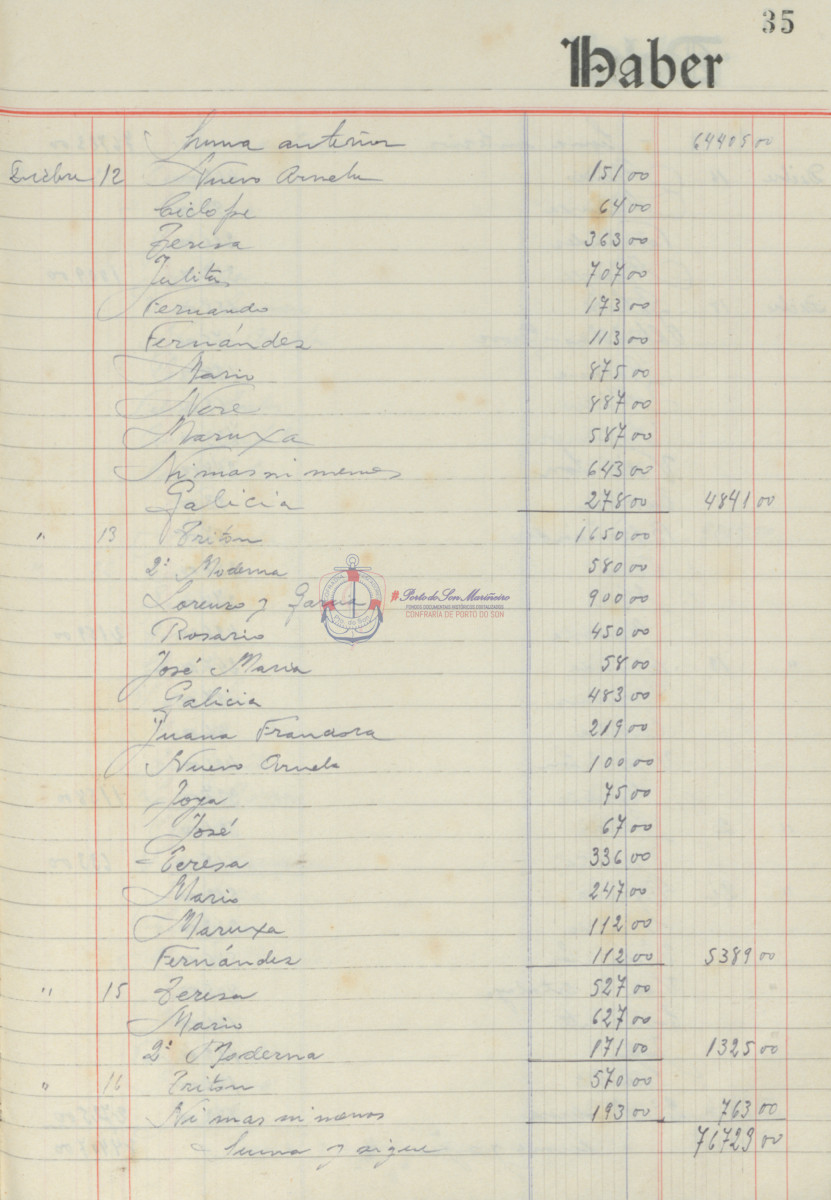 35
Haber
Suma anterior 64405 00
Dicibre 12 Nuevo Arnela 151 00
Ciclope 64 00
Teresa 363 00
Julita 707 00
Fernando 173 00
Fernández 113 00
Mario 875 00
Nore 887 00
Maruxa 587 00
Ni mas ni menos 643 00
Galicia 278 00 4841 00
" 13 Triton 1650 00
2ª Moderna 580 00
Lorenzo y Garcia 900 00
#Porto do Son Mariñeiro
FONDOS DOCUMENTAIS HISTÓRICOS DIXITALIZADOS
CONFRARÍA DE PORTO DO SON
Rosario 450 00
José Maria 58 00
Galicia 483 00
Juana Francisca 219 00
Nuevo Arnela 100 00
Joya 75 00
José 67 00
Teresa 336 00
Mario 247 00
Maruxa 112 00
Fernández 112 00 5389 00
" 15 Teresa 527 00
Mario 627 00
2ª Moderna 171 00 1325 00
" 16 Triton 570 00
Ni mas ni menos 193 00 763 00
Suma y sigue 76723 00